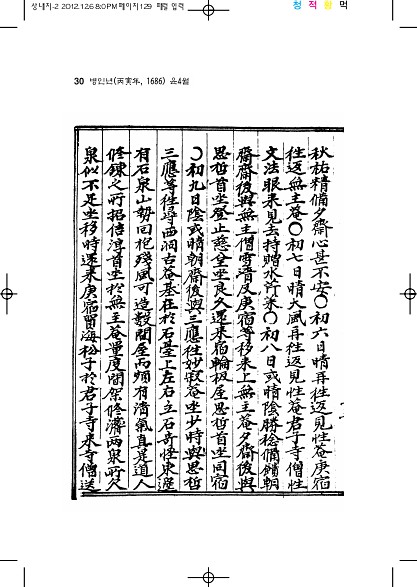 상내지-2 2012.12.6 8:0 PM 페이지129
청 적 황 먹
30 병인년(丙寅年, 1686) 윤4월
秋祐精備夕齋心甚不安○初六日晴再往返見性庵庚宿
往返無主庵○初七日晴大風再往返見性庵君子寺僧性
文法眼來見去持贈水芹菜○初八日或晴陰勝稔備饋朝
齋齋後與無主僧雪清及庚宿等移來上無主庵夕齋後與
思哲首坐登止慈坐坐良久還來宿輪板屋思哲首坐同宿
○初九日陰或晴朝齋後與三應往妙寂庵坐少時與思哲
三應等往尋西洞古庵基在於石臺上左右立石奇怪東邊
有石泉山勢回抱殘風可造數間屋而頗有清氣真是道人
修鍊之所招信淳首坐於無主庵量度間架修濟兩泉所久
泉似不足坐移時還來庚宿買海松子於君子寺來寺僧送